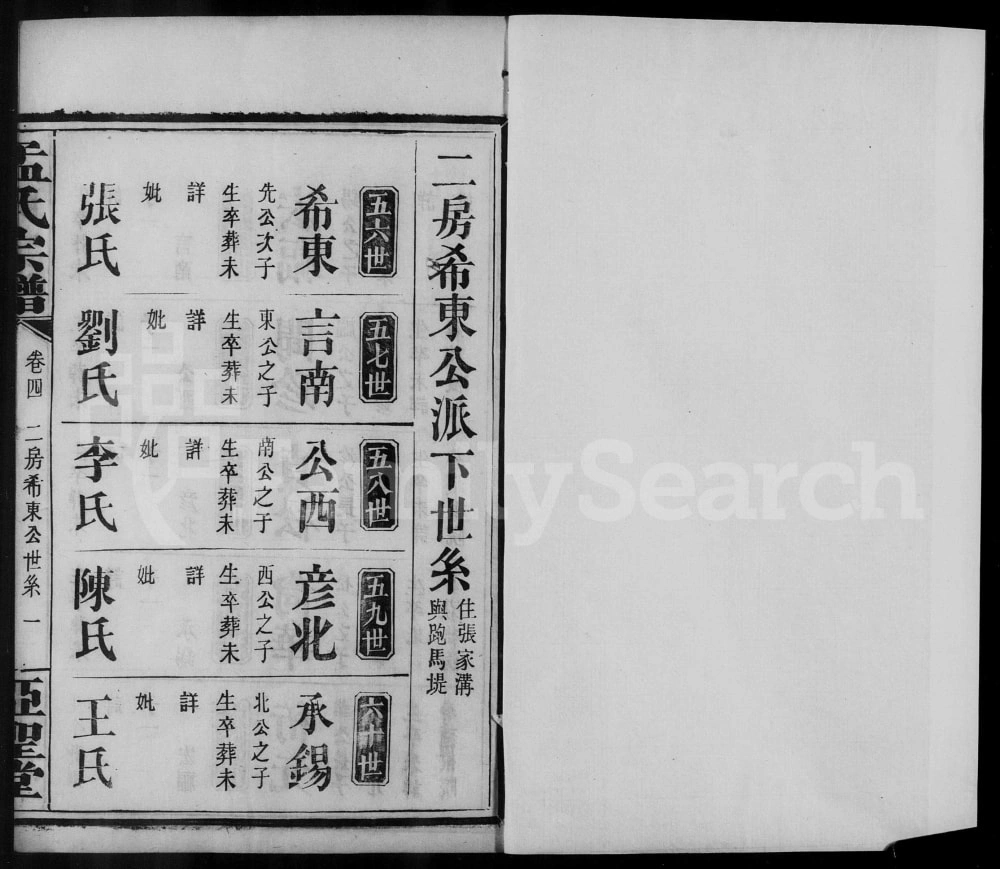 二房希東公派下世系
住張家溝
與跑馬堤
五六世
希東
先公次子
生卒葬未
詳
妣
張氏
五七世
言南
東公之子
生卒葬未
詳
妣
劉氏
五八世
公西
南公之子
生卒葬未
詳
妣
李氏
五九世
彦北
西公之子
生卒葬未
詳
妣
陳氏
六十世
承錫
北公之子
生卒葬未
詳
妣
王氏
孟氏宗譜
卷四
二房希東公世系
一
亞聖堂
FamilySearch